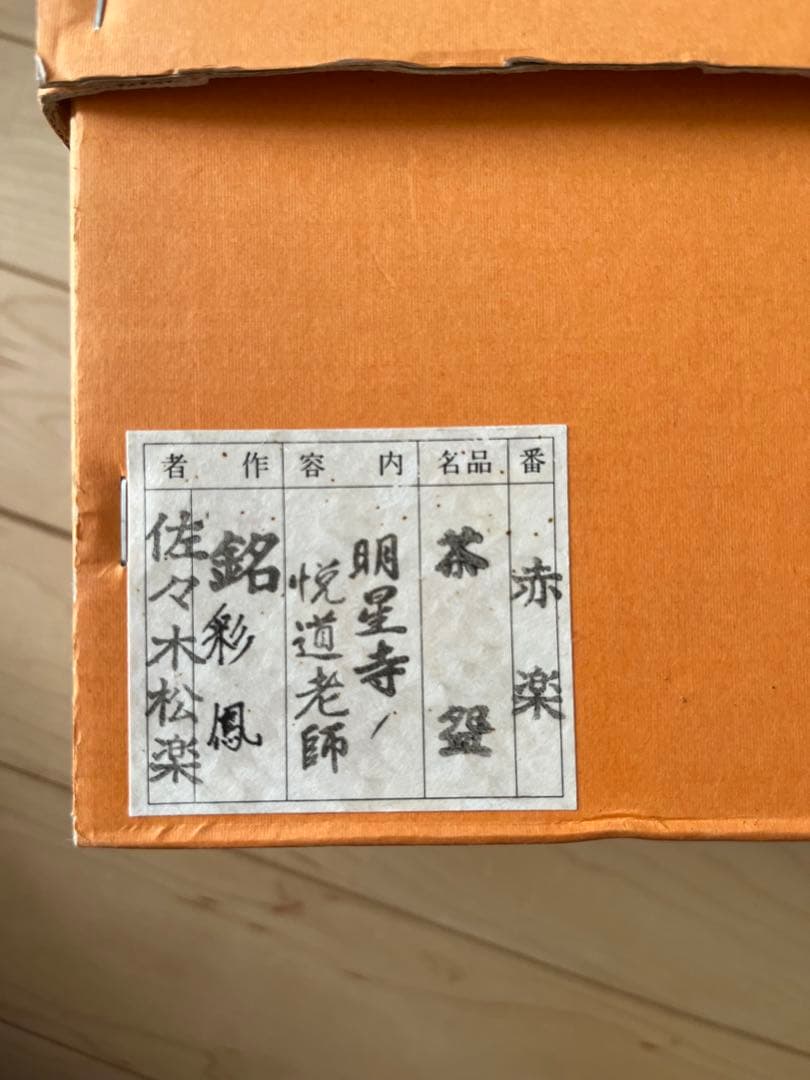 番
赤楽
品名
茶盌
内容
明星寺ノ
悦道老師
作者
銘彩鳳
佐々木松楽